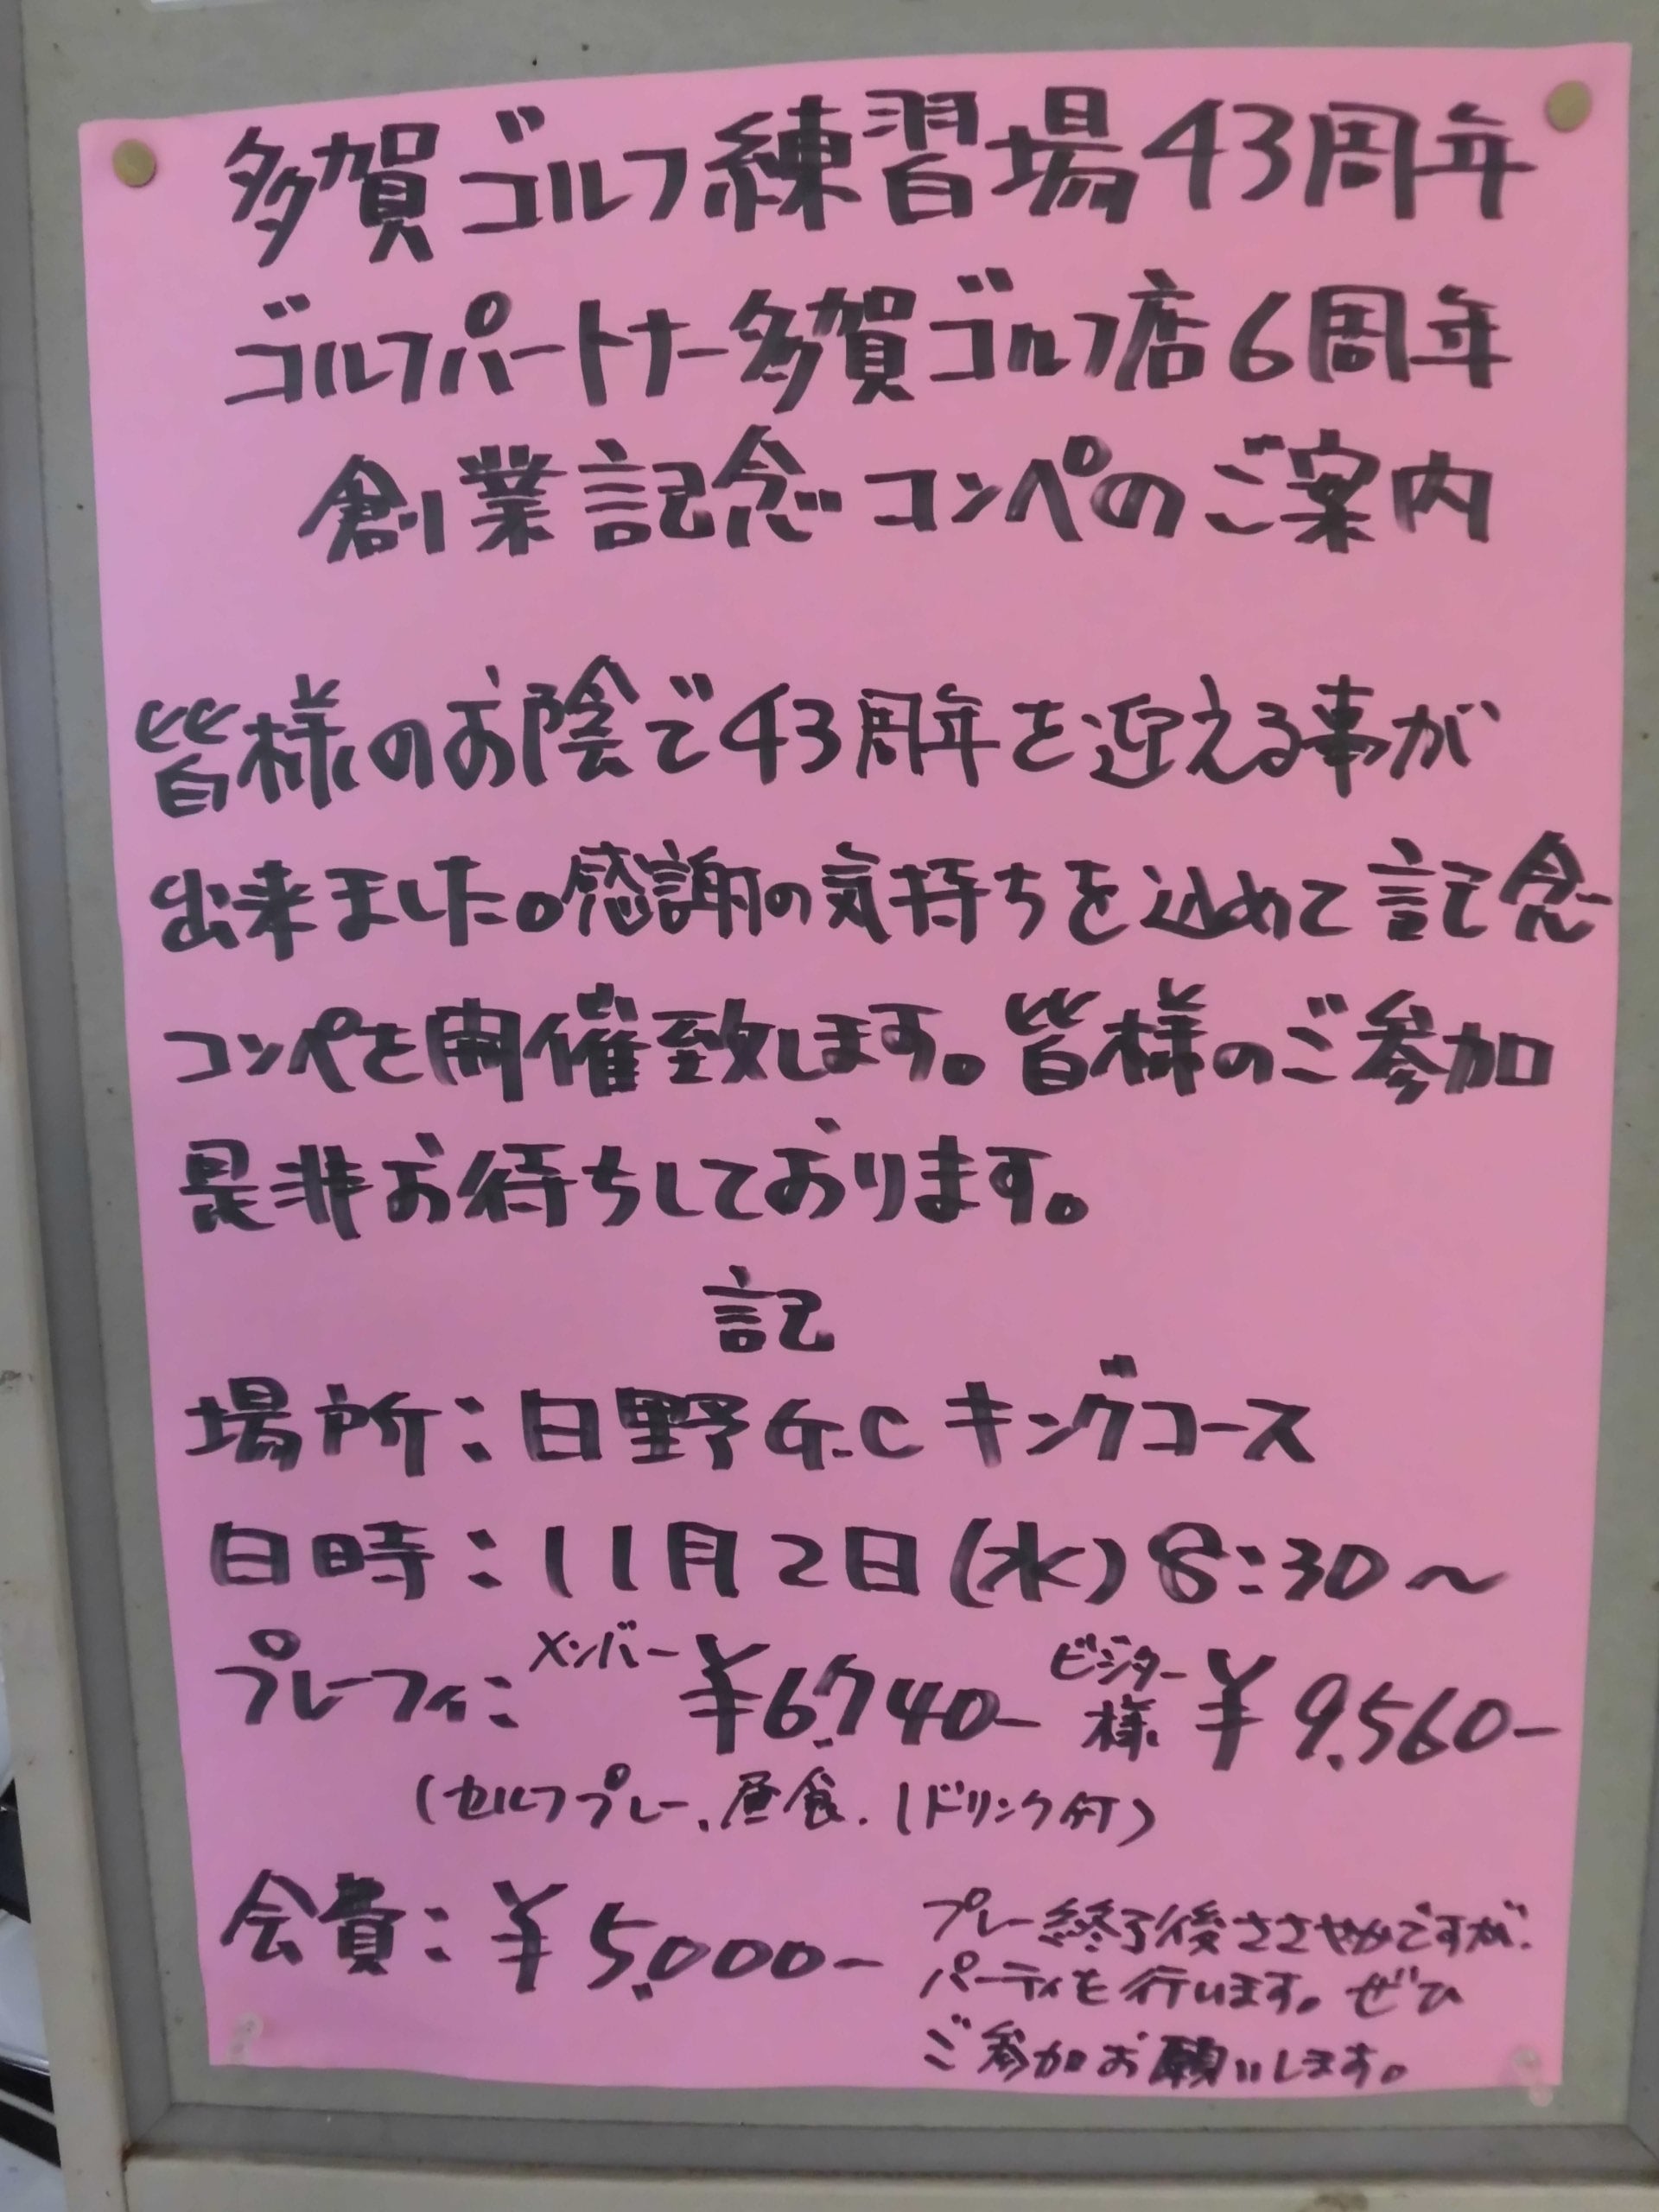 多賀ゴルフ練習場43周年
ゴルフパートナー多賀ゴルフ店6周年
創業記念コンペのご案内
皆様のお陰で43周年を迎える事が
出来ました。感謝の気持ちを込めて記念
コンペを開催致します。皆様のご参加
是非お待ちしております。
記
場所:日野G.Cキングコース
日時:11月2日(水)8:30～
プレーフィ:メンバー¥6,740- ビジター様¥9,560-
(セルフプレー、昼食、1ドリンク付)
会費:¥5,000-
プレー終了後ささやかですが、
パーティを行います。ぜひ
ご参加お願いします。